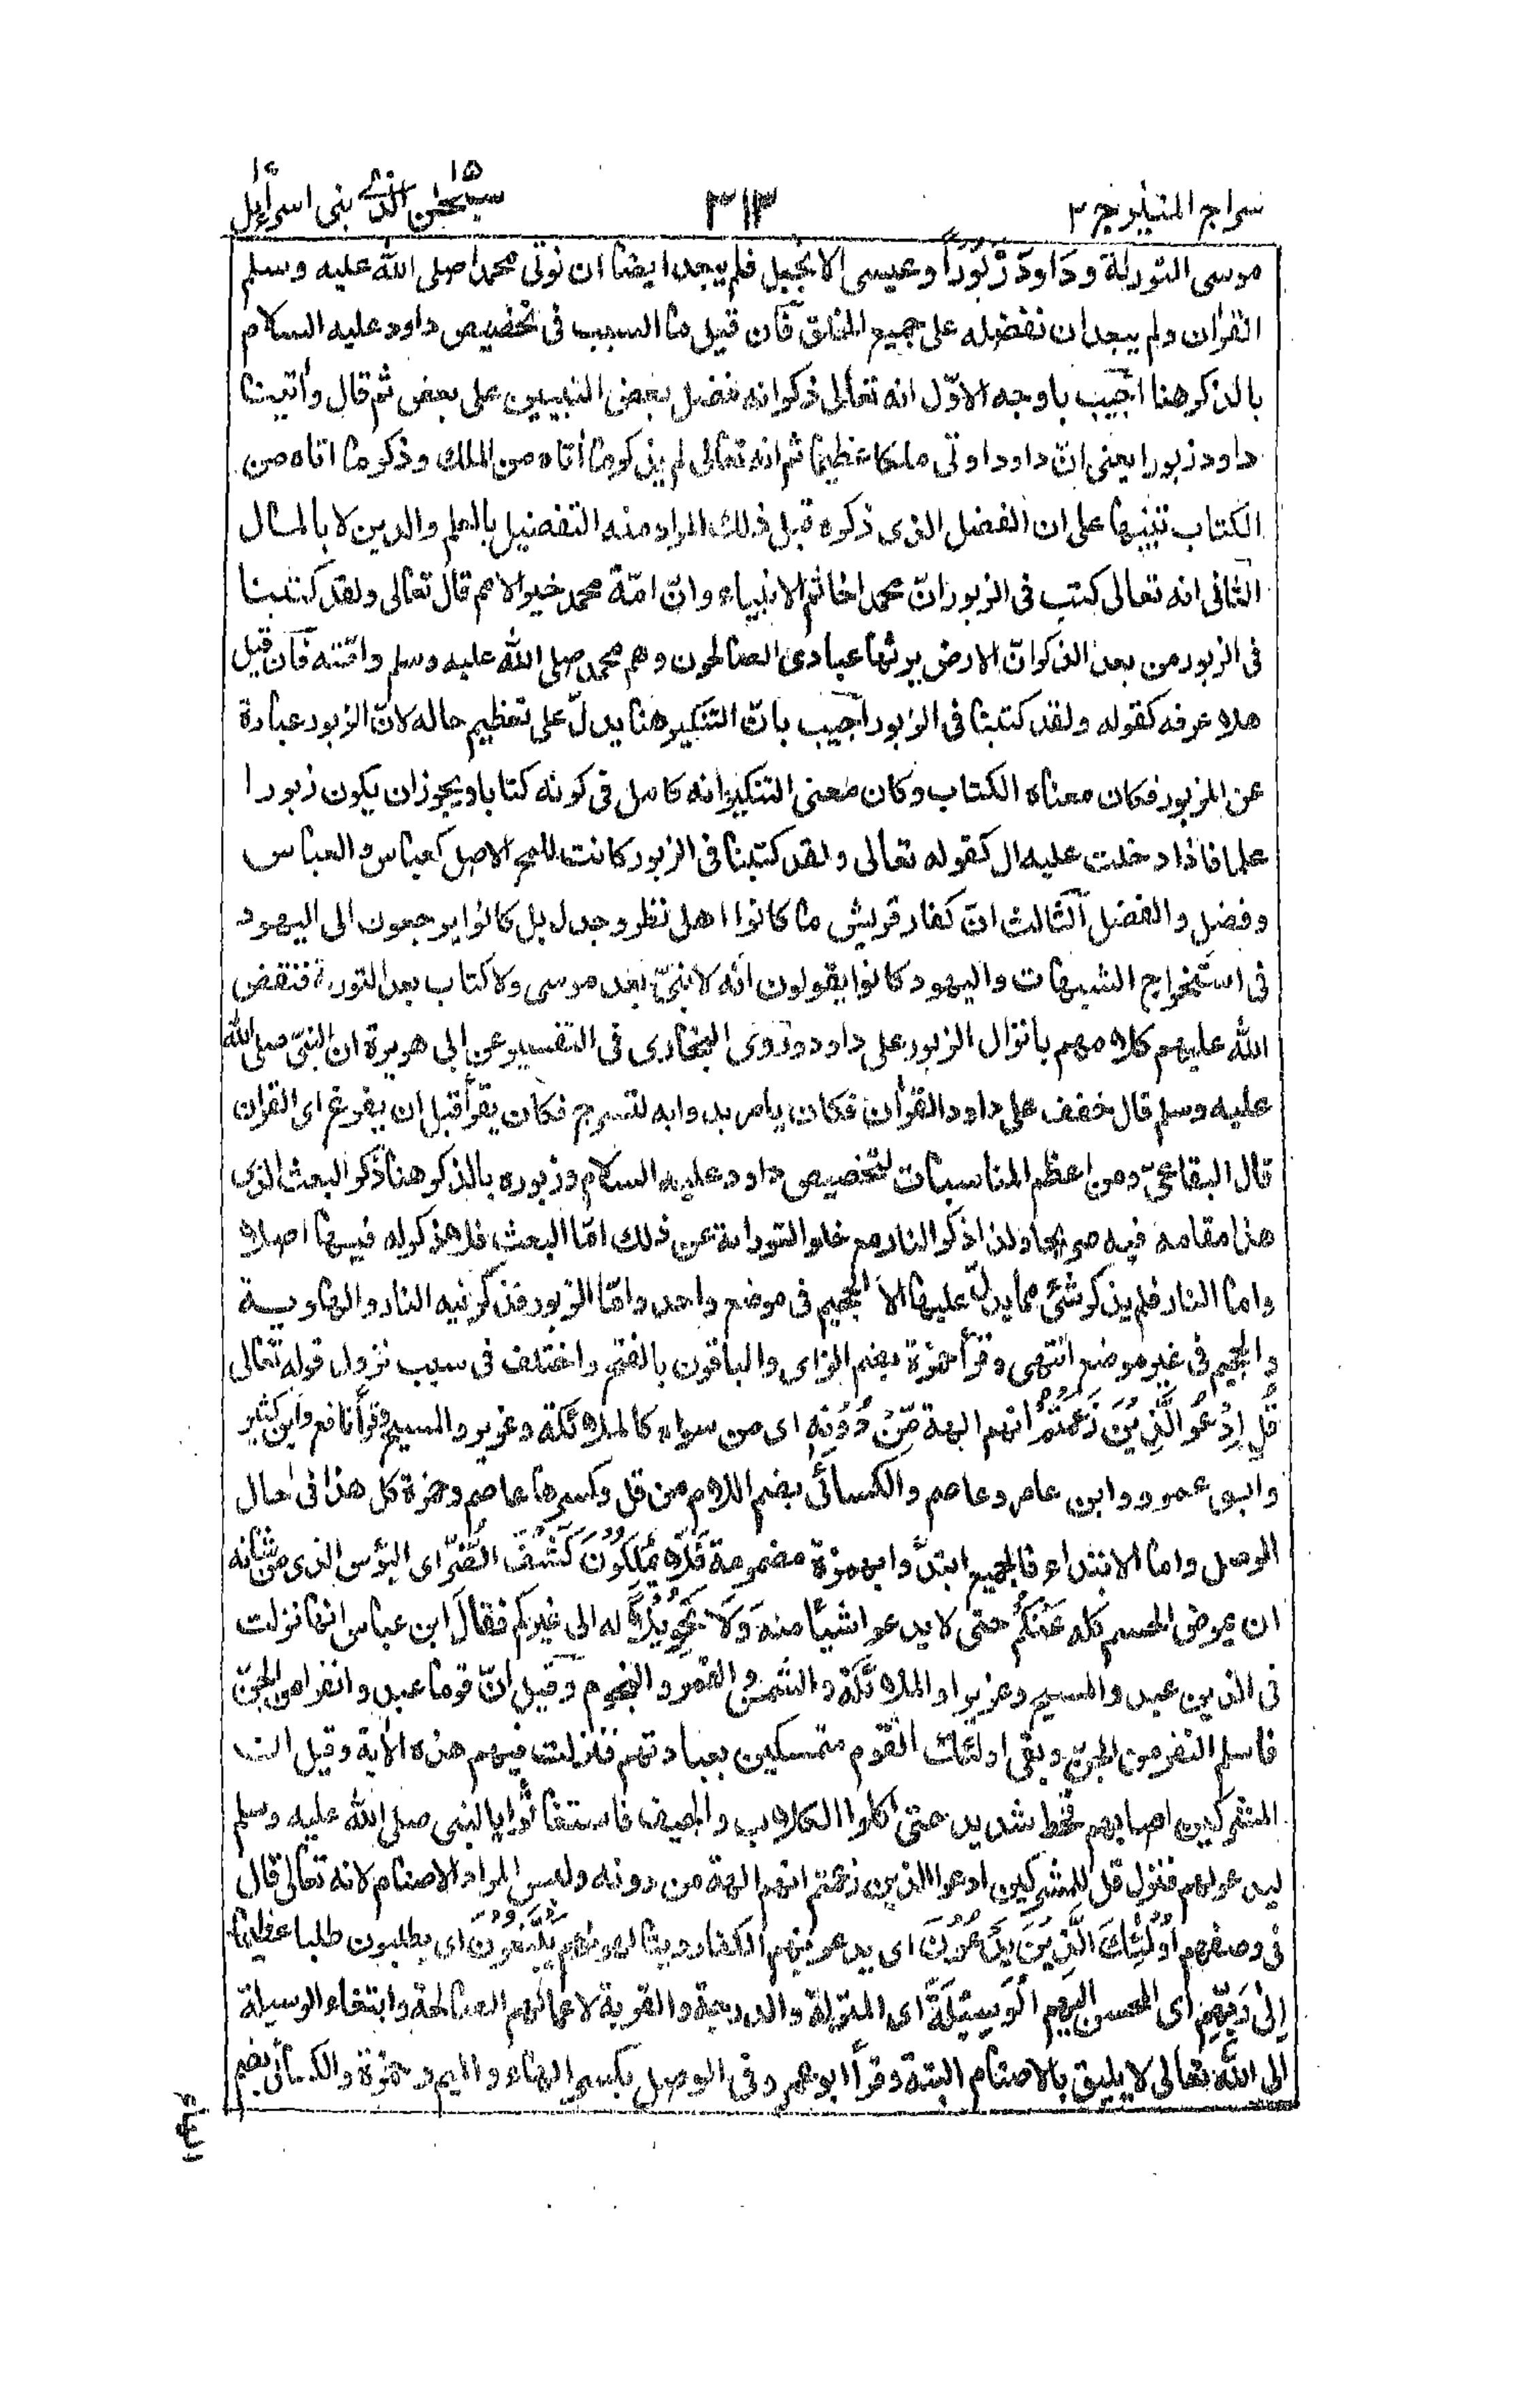 سراج المنير ج ٢
٣١٣
سبحٰن الذي ١٥ بنى اسرائيل ١٧
موسى التورىٰة ودَاودَ زَبُوْرًا وعيسى الانجيل فلم يبعد ايضا ان نوتى محمدا صلى الله عليه وسلم
القران ولم يبعد ان نفضله على جميع الخلق فان قيل ما السبب فى تخصيص داود عليه السلام
بالذكر هنا اجيب باوجه الاوّل انه تعالى ذكر انه فضل بعض النبيين على بعض ثم قال واٰتينا
داود زبورا يعنى انّ داود اوتى ملكا عظيما ثم انه تعالى لم يذكر ما اٰتاه من الملك وذكر ما اتاه من
الكتاب تنبيها على ان الفضل الذى ذكره قبل ذلك المراد منه التفضيل بالعلم والدين لا بالمال
الثانى انه تعالى كتب فى الزبور انّ محمدا خاتم الانبياء وانّ امّة محمد خير الامم قال تعالى ولقد كتبنا
فى الزبور من بعد الذكر انّ الارض يرثها عبادى الصالحون وهم محمد صلى الله عليه وسلم وامّته فان قيل
هلا عرفه كقوله ولقد كتبنا فى الزبور اجيب بانّ التنكير هنا يدلّ على تعظيم حاله لانّ الزبور عبارة
عن المزبور فكان معناه الكتاب وكان معنى التنكير انه كامل فى كونه كتابا ويجوز ان يكون زبورا
علما فاذا دخلت عليه ال كقوله تعالى ولقد كتبنا فى الزبور كانت للمح الاصل كعباس والعباس
وفضل والفضل الثالث انّ كفار قريش ما كانوا اهل نظر وجدل بل كانوا يرجعون الى اليهود
فى استخراج الشبهات واليهود كانوا يقولون انّه لا نبىّ بعد موسى ولا كتاب بعد التورىة فنقض
الله عليهم كلامهم بانزال الزبور على داود وروى البخارى فى التفسير عن ابى هريرة ان النبىّ صلى الله
عليه وسلم قال خفف على داود القرأن فكان يامر بدوابه لتسرج فكان يقرأ قبل ان يفرغ اى القران
قال البقاعىّ ومن اعظم المناسبات لتخصيص داود عليه السلام وزبوره بالذكر هنا ذكر البعث الذى
هذا مقامه فيه صريحا ولذا ذكر النار مع خلو التوراىة عن ذلك امّا البعث فلا ذكر له فيها اصلا
واما النار فلم يذكر شئ مما يدلّ عليها الا الجحيم فى موضع واحد وامّا الزبور فذكر فيه النار والهاوية
والجحيم فى غير موضع انتهى وقرأ حمزة بضم الزاى والباقون بالفتح واختلف فى سبب نزول قوله تعالى
قُلِ ادْعُوا الَّذِيْنَ زَعَمْتُمْ انهم الهة مِّنْ دُوْنِهٖ اى من سواه كالملائكة وعزير والمسيح وقرأ نافع وابن كثير
وابو عمرو وابن عامر وعاصم والكسائى بضم اللام من قل وكسرها عاصم وحمزة كل هذا فى حال
الوصل واما الابتداء فالجميع ابتدؤا بهمزة مضمومة فَلَا يَمْلِكُوْنَ كَشْفَ الضُّرِّ اى البؤس الذى من شانه
ان يمرض الجسم كله عَنْكُمْ حتى لا يدعوا شيأ منه وَلَا تَحْوِيْلًا له الى غيركم فقال ابن عباس انها نزلت
فى الذين عبدوا المسيح وعزيرا والملائكة والشمس والقمر والنجوم وقيل انّ قوما عبدوا نفرا من الجنّ
فاسلم النفر من الجنّ وبقى اولئك القوم متمسكين بعبادتهم فنزلت فيهم هذه الاية وقيل ان
المشركين اصابهم قحط شديد حتى اكلوا الكلاب والجيف فاستغاثوا بالنبى صلى الله عليه وسلم
ليدعو لهم فنزل قل للمشركين ادعوا الذين زعمتم انهم الهة من دونه وليس المراد الاصنام لانه تعالى قال
فى وصفهم اُولٰٓئِكَ الَّذِيْنَ يَدْعُوْنَ اى يدعونهم الكفار ويتالهونهم يَبْتَغُوْنَ اى يطلبون طلبا عظيما
اِلٰى رَبِّهِمُ اى المحسن اليهم الْوَسِيْلَةَ اى المنزلة والدرجة والقربة لاعمالهم الصالحة وابتغاء الوسيلة
الى الله تعالى لا يليق بالاصنام البتة وقرأ ابو عمرو فى الوصل بكسر الهاء والميم وحمزة والكسائى بضم